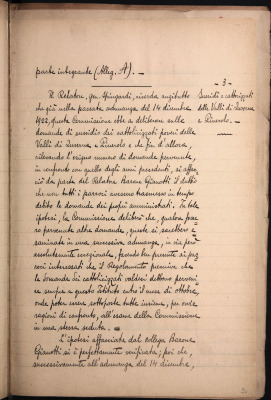 parte integrante (Alleg. A). -
- 3 -
Il Relatore, gen. Spingardi, ricorda anzitutto
che già nella passata adunanza del 14 dicembre
1922, questa Commissione ebbe a deliberare sulle
domande di sussidio dei cattolicizzati poveri delle
Valli di Luserna e Pinerolo e che fin d'allora,
rilevando l'esiguo numero di domande pervenute,
in confronto con quello degli anni precedenti, si affac-
ciò da parte del Relatore Barone Gianotti il dubbio
che non tutti i parroci avessero trasmesso in tempo
debito le domande dei propri amministrati. In tale
ipotesi, la Commissione deliberò che, qualora fosse-
ro pervenute altre domande, queste si sarebbero e-
saminate in una successiva adunanza, in via però
assolutamente eccezionale, facendo ben presente ai par-
roci interessati che il Regolamento prescrive che
le domande dei cattolicizzati valdesi debbono perveni-
re sempre a questo Istituto entro il mese di ottobre,
onde poter essere sottoposte tutte insieme, per ovvie
ragioni di confronto, all'esame della Commissione
in una stessa seduta. -
L'ipotesi affacciata dal collega Barone
Gianotti si è perfettamente verificata; poi che,
successivamente all'adunanza del 14 dicembre,
Sussidi a cattolicizzati
delle Valli di Luserna
e Pinerolo. -